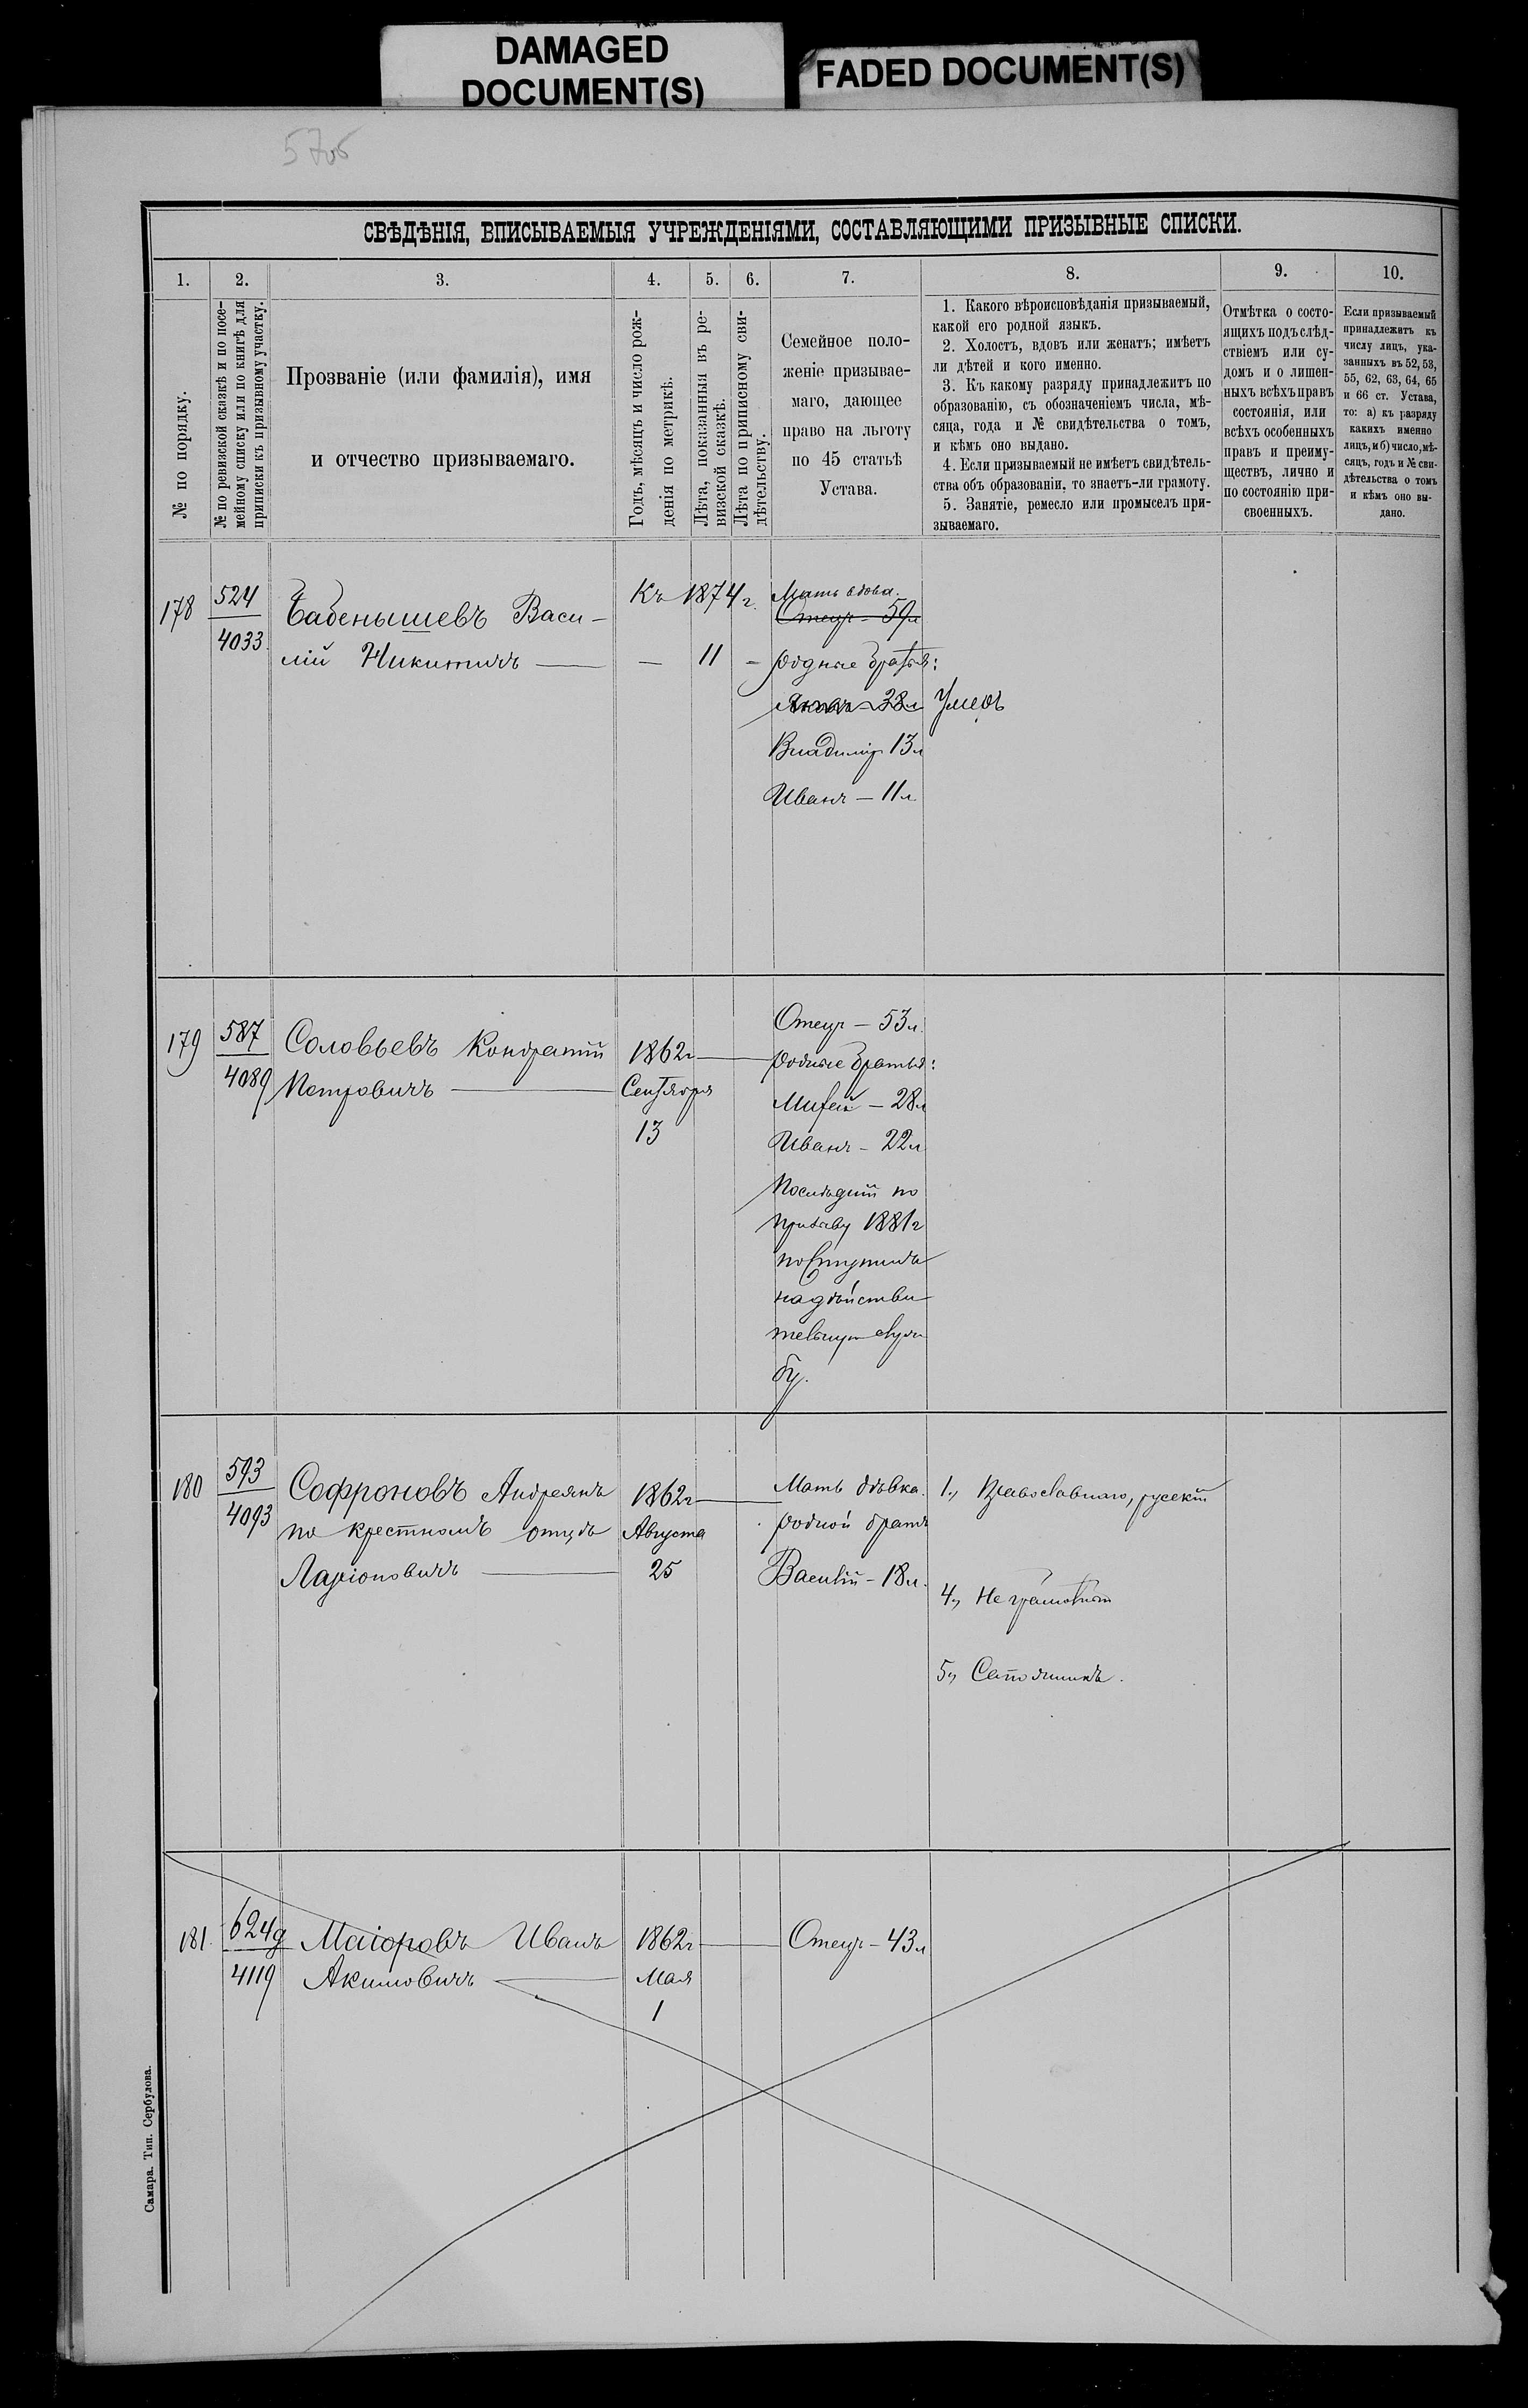 DAMAGED
DOCUMENT(S)
FADED DOCUMENT(S)
57об
СВѢДѢНІЯ, ВПИСЫВАЕМЫЯ УЧРЕЖДЕНІЯМИ, СОСТАВЛЯЮЩИМИ ПРИЗЫВНЫЕ СПИСКИ.
1. 2. 3. 4. 5. 6. 7. 8. 9. 10.
№ по порядку.
№ по ревизской сказкѣ и по посе-
мейному списку или по книгѣ для
приписки къ призывному участку.
Прозваніе (или фамилія), имя
и отчество призываемаго.
Годъ, мѣсяцъ и число рож-
денія по метрикѣ.
Лѣта, показанныя въ ре-
визской сказкѣ.
Лѣта по приписному сви-
дѣтельству.
Семейное поло-
женіе призывае-
маго, дающее
право на льготу
по 45 статьѣ
Устава.
1. Какого вѣроисповѣданія призываемый,
какой его родной языкъ.
2. Холостъ, вдовъ или женатъ; имѣетъ
ли дѣтей и кого именно.
3. Къ какому разряду принадлежитъ по
образованію, съ обозначеніемъ числа, мѣ-
сяца, года и № свидѣтельства о томъ,
и кѣмъ оно выдано.
4. Если призываемый не имѣетъ свидѣтель-
ства объ образованіи, то знаетъ-ли грамоту.
5. Занятіе, ремесло или промыселъ при-
зываемаго.
Отмѣтка о состо-
ящихъ подъ слѣд-
ствіемъ или су-
домъ и о лишен-
ныхъ всѣхъ правъ
состоянія, или
всѣхъ особенныхъ
правъ и преиму-
ществъ, лично и
по состоянію при-
своенныхъ.
Если призываемый
принадлежитъ къ
числу лицъ, ука-
занныхъ въ 52, 53,
55, 62, 63, 64, 65
и 66 ст. Устава,
то: а) къ разряду
какихъ именно
лицъ, и б) число, мѣ-
сяцъ, годъ и № сви-
дѣтельства о томъ
и кѣмъ оно вы-
дано.
178
524
4033
Бабенышевъ Васи-
лій Никитичъ
Къ 1874 г.
— 11 —
Мать вдова.
Отецъ – 59 л
родные братья:
Яковъ – 28 л Умеръ
Владиміръ 13 л
Иванъ – 11 л
179
587
4089
Соловьевъ Кондратій
Петровичъ
1862 г
Сентября
13
Отецъ – 53 л.
родные братья:
Мифей – 28 л
Иванъ – 22 л
Послѣдній по
призыву 1881 г
поступилъ
на дѣйстви
тельную служ
бу.
180
593
4093
Софроновъ Андреянъ
по крестномъ отцѣ
Ларіоновичъ
1862 г
Августа
25
Мать дѣвка.
родной братъ
Василій – 18 л.
1, Православнаго, русскій
4, Не грамотный
5, Сапожникъ.
181
624д
4119
Маіоровъ Иванъ
Акимовичъ
1862 г
Мая
1
Отецъ – 43 л
Самара. Тип. Сербулова.